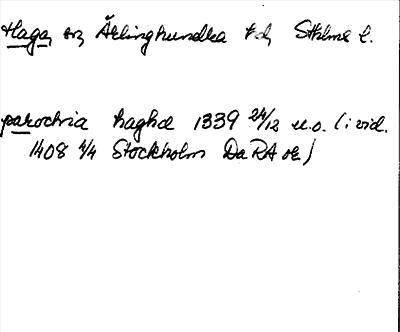 Haga, sn, Ärlinghundra hd, Sthlms l.
parochia haghæ 1339 24/12 u.o. (i vid.
1408 4/4 Stockholm DaRA or)